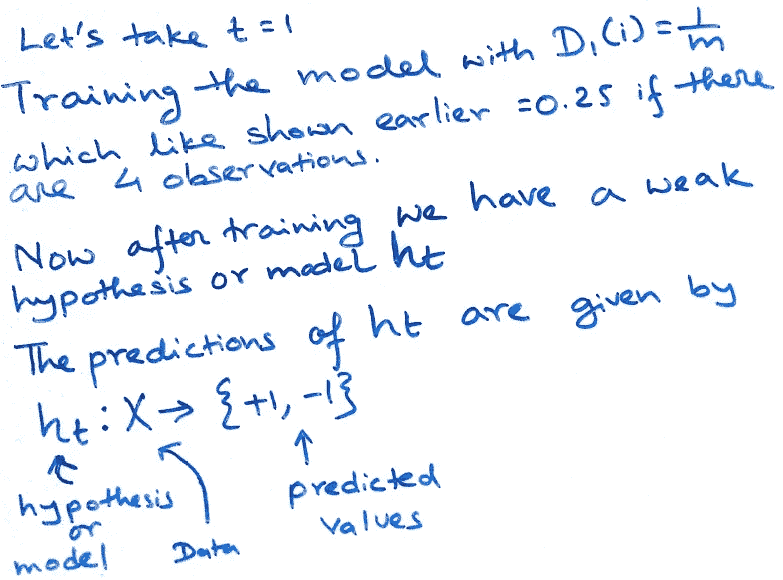 Let's take t = 1
Training the model with D₁(i) = 1/m
which like shown earlier = 0.25 if there
are 4 observations.
Now after training we have a weak
hypothesis or model ht
The predictions of ht are given by
ht : X → {+1, -1}
hypothesis
or
model
Data
predicted
values